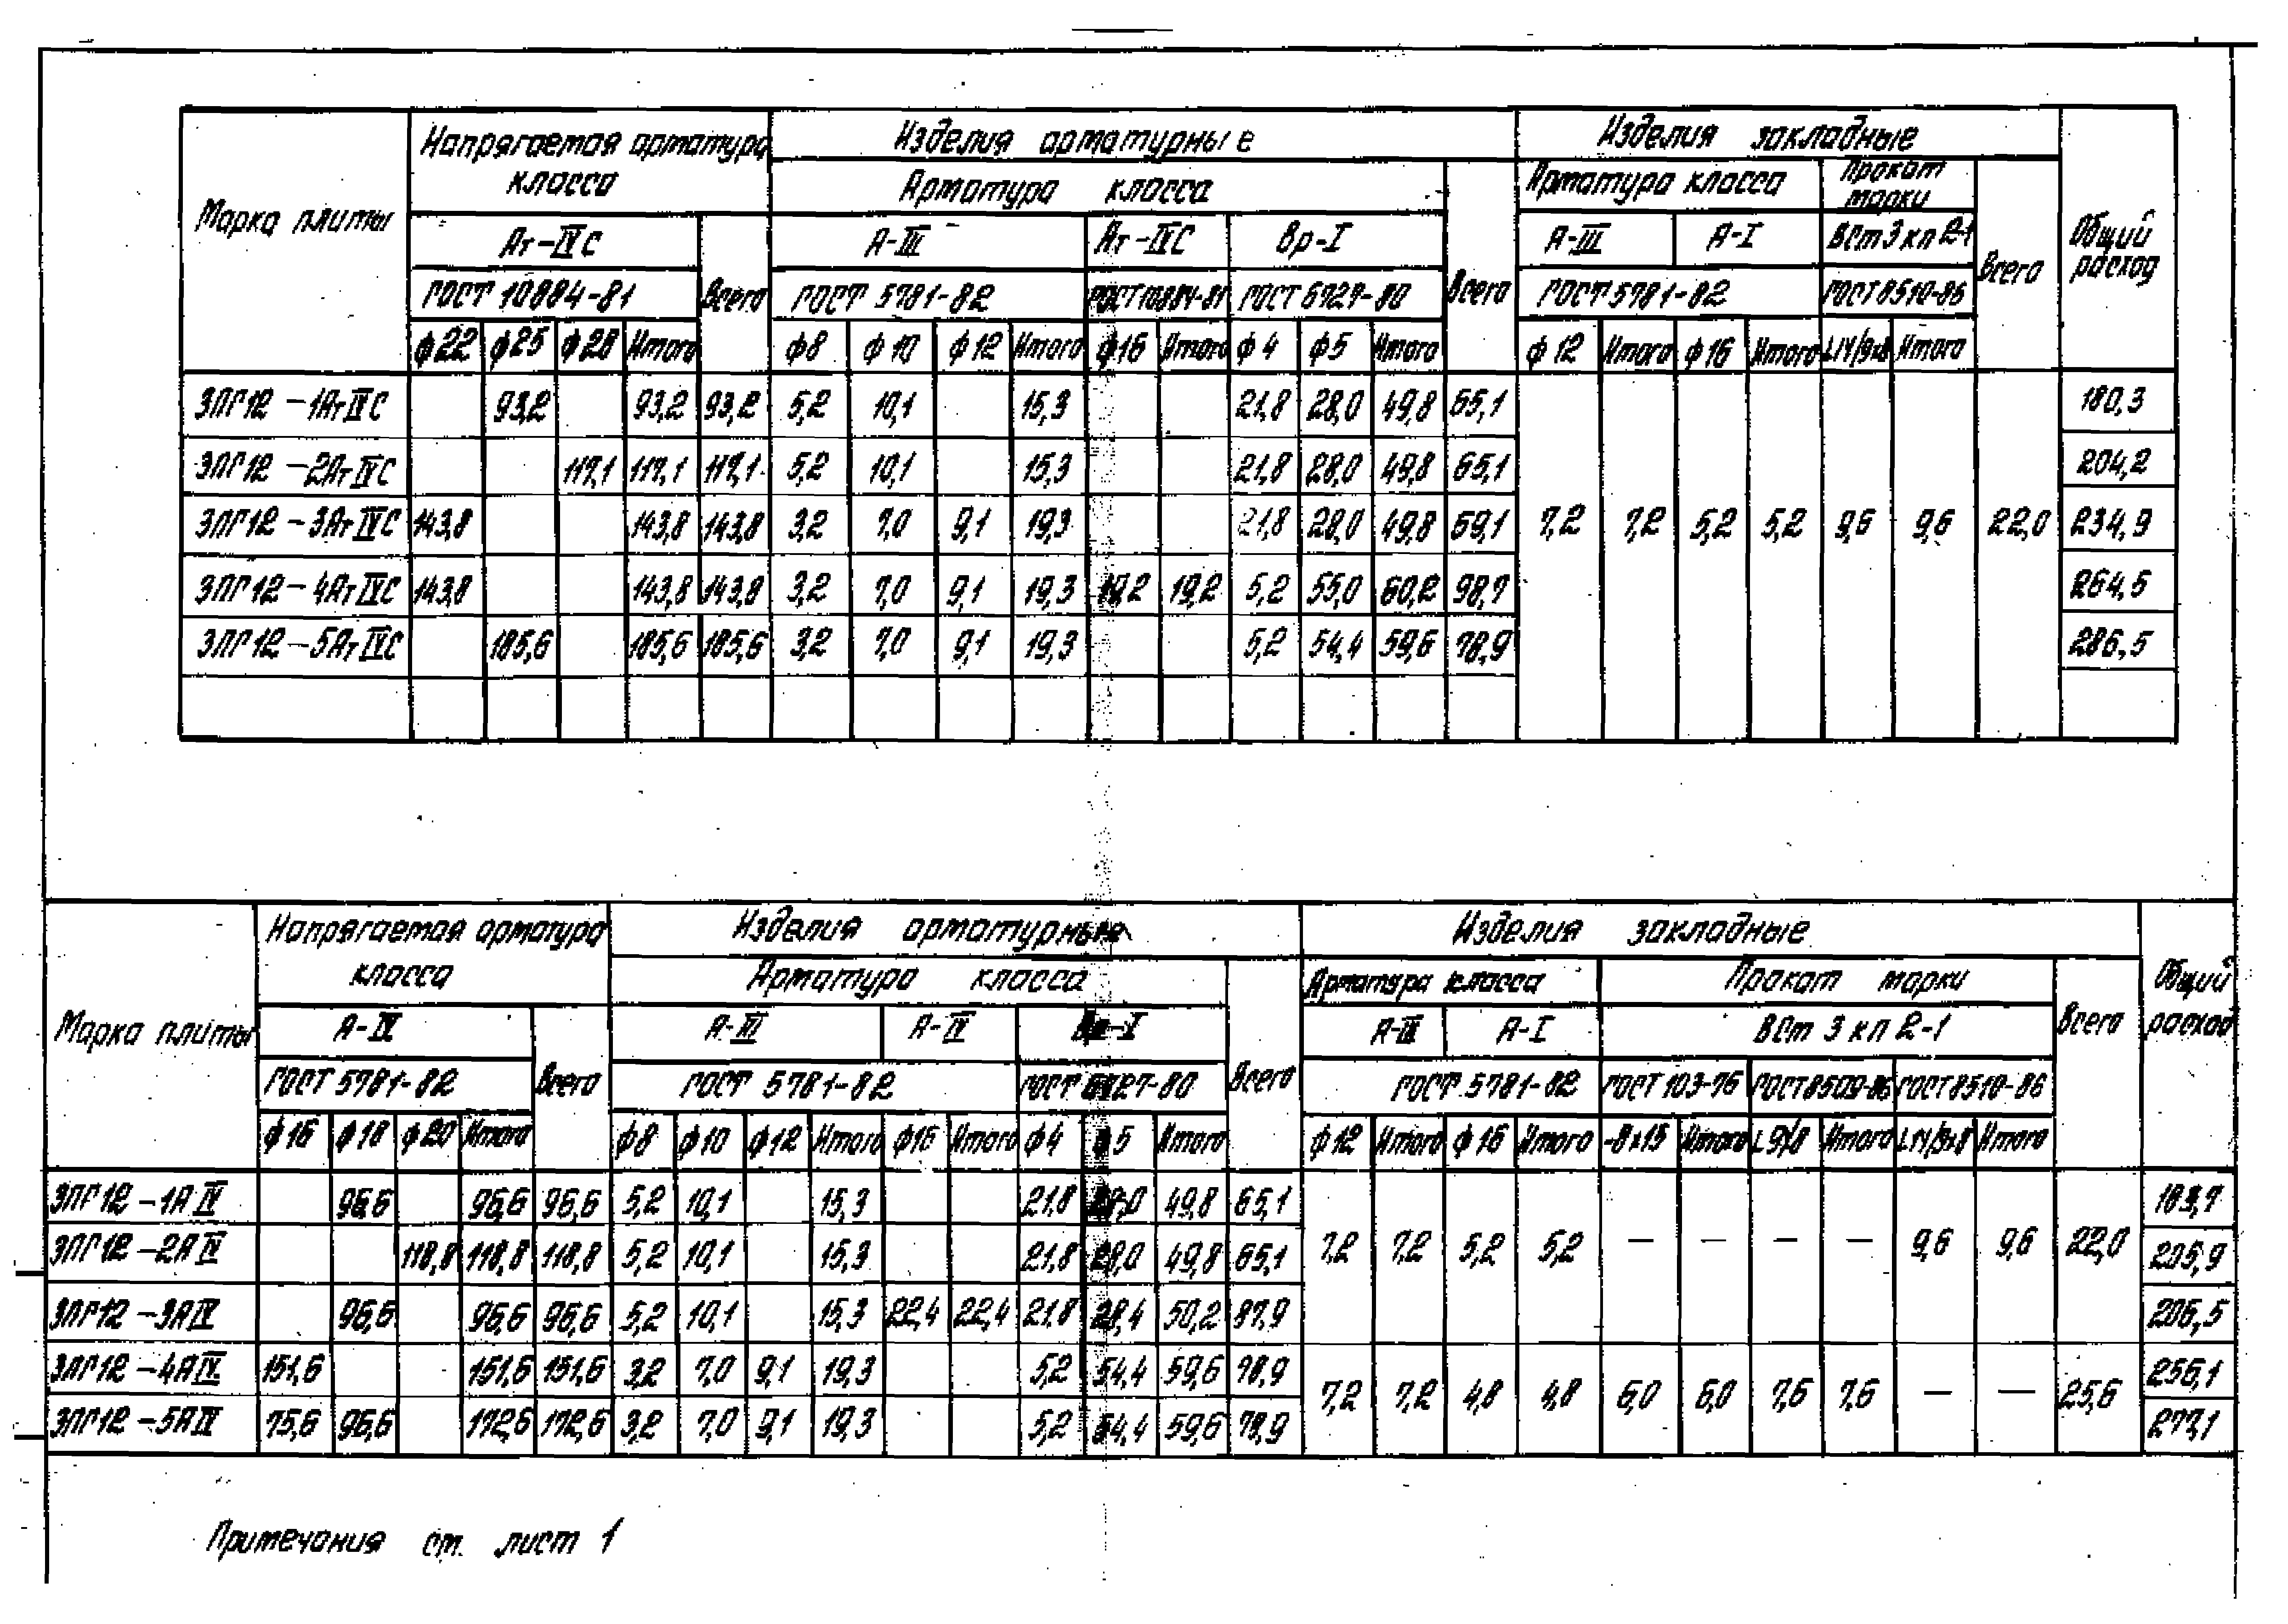 Марка плиты
Напрягаемая арматура класса
Изделия арматурные
Изделия закладные
Общий расход
Арматура класса
Всего
Арматура класса
Прокат марки
Всего
Ат-IVС
Всего
А-III
Ат-IVС
Вр-I
А-III
А-I
ВСт3кп2-1
ГОСТ 10884-81
ГОСТ 5781-82
ГОСТ 10884-81
ГОСТ 6727-80
ГОСТ 5781-82
ГОСТ 8510-86
ф22 ф25 ф28 Итого ф8 ф10 ф12 Итого ф16 Итого ф4 ф5 Итого ф12 Итого ф16 Итого Итого
3ПГ12-1АтIVС 93,2 93,2 93,2 5,2 10,1 15,3 21,8 28,0 49,8 65,1 180,3
3ПГ12-2АтIVС 117,1 117,1 117,1 5,2 10,1 15,3 21,8 28,0 49,8 65,1 204,2
3ПГ12-3АтIVС 143,8 143,8 143,8 3,2 7,0 9,1 19,3 21,8 28,0 49,8 69,1 7,2 7,2 5,2 5,2 9,6 9,6 22,0 234,9
3ПГ12-4АтIVС 143,8 143,8 143,8 3,2 7,0 9,1 19,3 19,2 19,2 5,2 55,0 60,2 98,7 264,5
3ПГ12-5АтIVС 185,6 185,6 185,6 3,2 7,0 9,1 19,3 5,2 54,4 59,6 78,9 286,5
Марка плиты
Напрягаемая арматура класса
Изделия арматурные
Изделия закладные
Общий расход
Арматура класса
Всего
Арматура класса
Прокат марки
Всего
А-IV
Всего
А-III
А-IV
Вр-I
А-III
А-I
ВСт 3 кп 2-1
ГОСТ 5781-82
ГОСТ 5781-82
ГОСТ 6727-80
ГОСТ 5781-82
ГОСТ 103-76
ГОСТ 8509-86
ГОСТ 8510-86
ф16 ф18 ф20 Итого ф8 ф10 ф12 Итого ф16 Итого ф4 ф5 Итого ф12 Итого ф16 Итого -8х15 Итого Итого Итого
3ПГ12-1АIV 96,6 96,6 96,6 5,2 10,1 15,3 21,8 28,0 49,8 65,1 183,7
3ПГ12-2АIV 118,8 118,8 118,8 5,2 10,1 15,3 21,8 28,0 49,8 65,1 7,2 7,2 5,2 5,2 — — — — 9,6 9,6 22,0 205,9
3ПГ12-3АIV 96,6 96,6 96,6 5,2 10,1 15,3 22,4 22,4 21,8 28,4 50,2 87,9 206,5
3ПГ12-4АIV 151,6 151,6 151,6 3,2 7,0 9,1 19,3 5,2 54,4 59,6 78,9 7,2 7,2 4,8 4,8 6,0 6,0 7,6 7,6 — — 25,6 256,1
3ПГ12-5АIV 75,6 96,6 172,6 172,6 3,2 7,0 9,1 19,3 5,2 54,4 59,6 78,9 277,1
Примечания см. лист 1